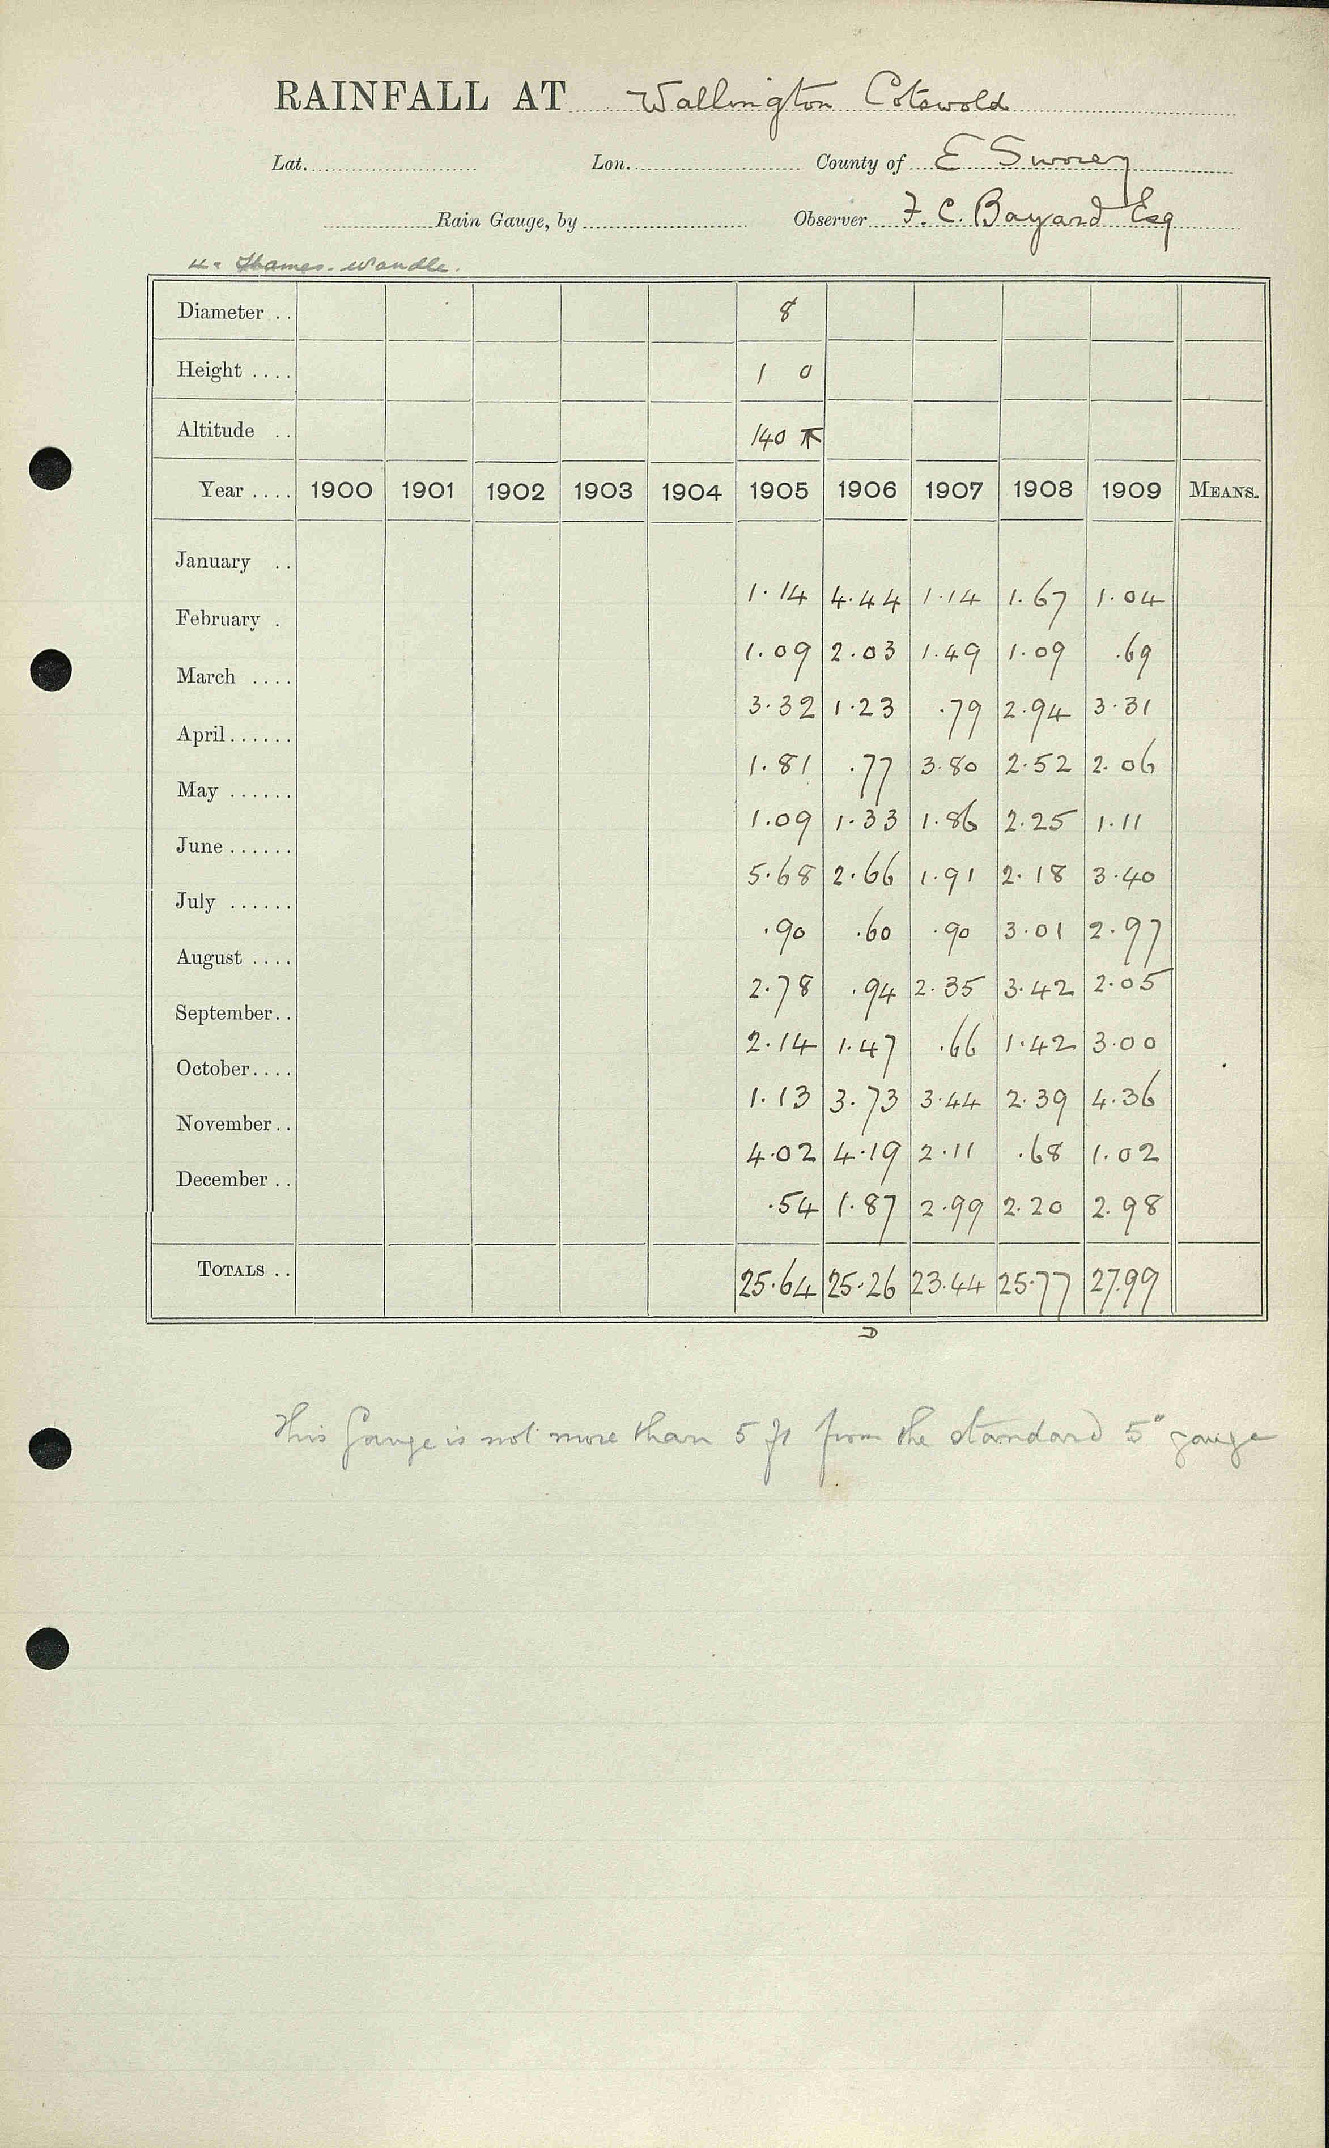 RAINFALL AT Wallington Cotswold
Lat. Lon. County of E Surrey
Rain Gauge, by Observer F. C. Bayard Esq
Thames. Wandle.
Diameter .. 8
Height .... 1 0
Altitude .. 140
Year .... 1900 1901 1902 1903 1904 1905 1906 1907 1908 1909 MEANS.
January .. 1.14 4.44 1.14 1.67 1.04
February . 1.09 2.03 1.49 1.09 .69
March .... 3.32 1.23 .79 2.94 3.31
April...... 1.81 .77 3.80 2.52 2.06
May ...... 1.09 1.33 1.86 2.25 1.11
June ...... 5.68 2.66 1.91 2.18 3.40
July ...... .90 .60 .90 3.01 2.97
August .... 2.78 .94 2.35 3.42 2.05
September.. 2.14 1.47 .66 1.42 3.00
October.... 1.13 3.73 3.44 2.39 4.36
November.. 4.02 4.19 2.11 .68 1.02
December .. .54 1.87 2.99 2.20 2.98
TOTALS .. 25.64 25.26 23.44 25.77 27.99
D
This Gauge is not more than 5 ft from the standard 5" gauge